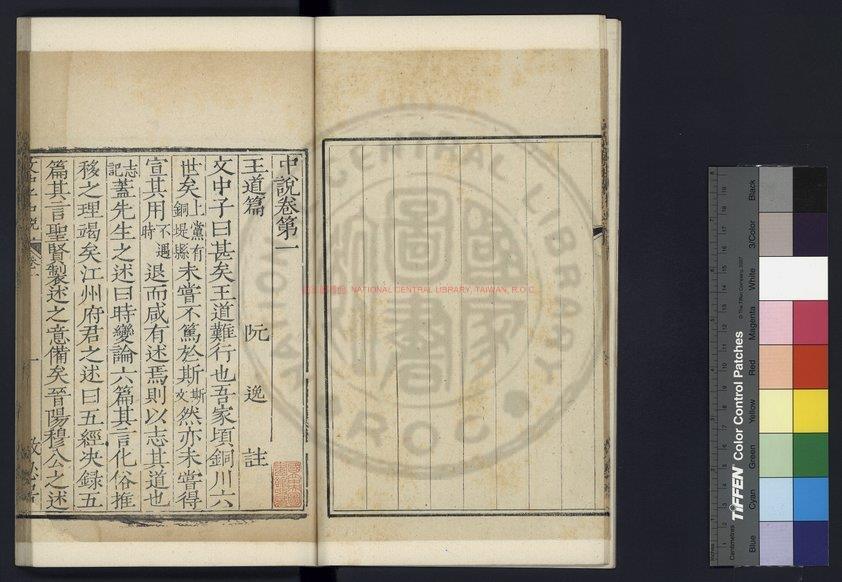 中說卷第一
王道篇 阮逸註
文中子曰甚矣王道難行也吾家頃銅川六
世矣上黨有銅堤縣未嘗不篤於斯斯文然亦未嘗得
宣其用不遇時退而咸有述焉則以志其道也
志記蓋先生之述曰時變論六篇其言化俗推
移之理竭矣江州府君之述曰五經决録五
篇其言聖賢製述之意備矣晉陽穆公之述
文中子說 卷一 一
NATIONAL CENTRAL LIBRARY, TAIWAN, R.O.C
NATIONAL CENTRAL LIBRARY
R.O.C.
國家圖書館
TIFFEN Color Control Patches
© The Tiffen Company, 2007
Centimetres
Blue Cyan Green Yellow Red Magenta White 3/Color Black